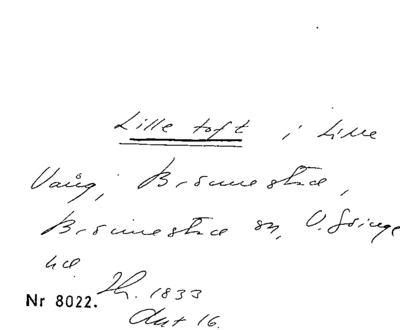 Lille toft i Lille
Vång, Brönnestad,
Brönnestad sn, V. Göinge
hd.
Nr 8022. Th. 1833
Akt 16.